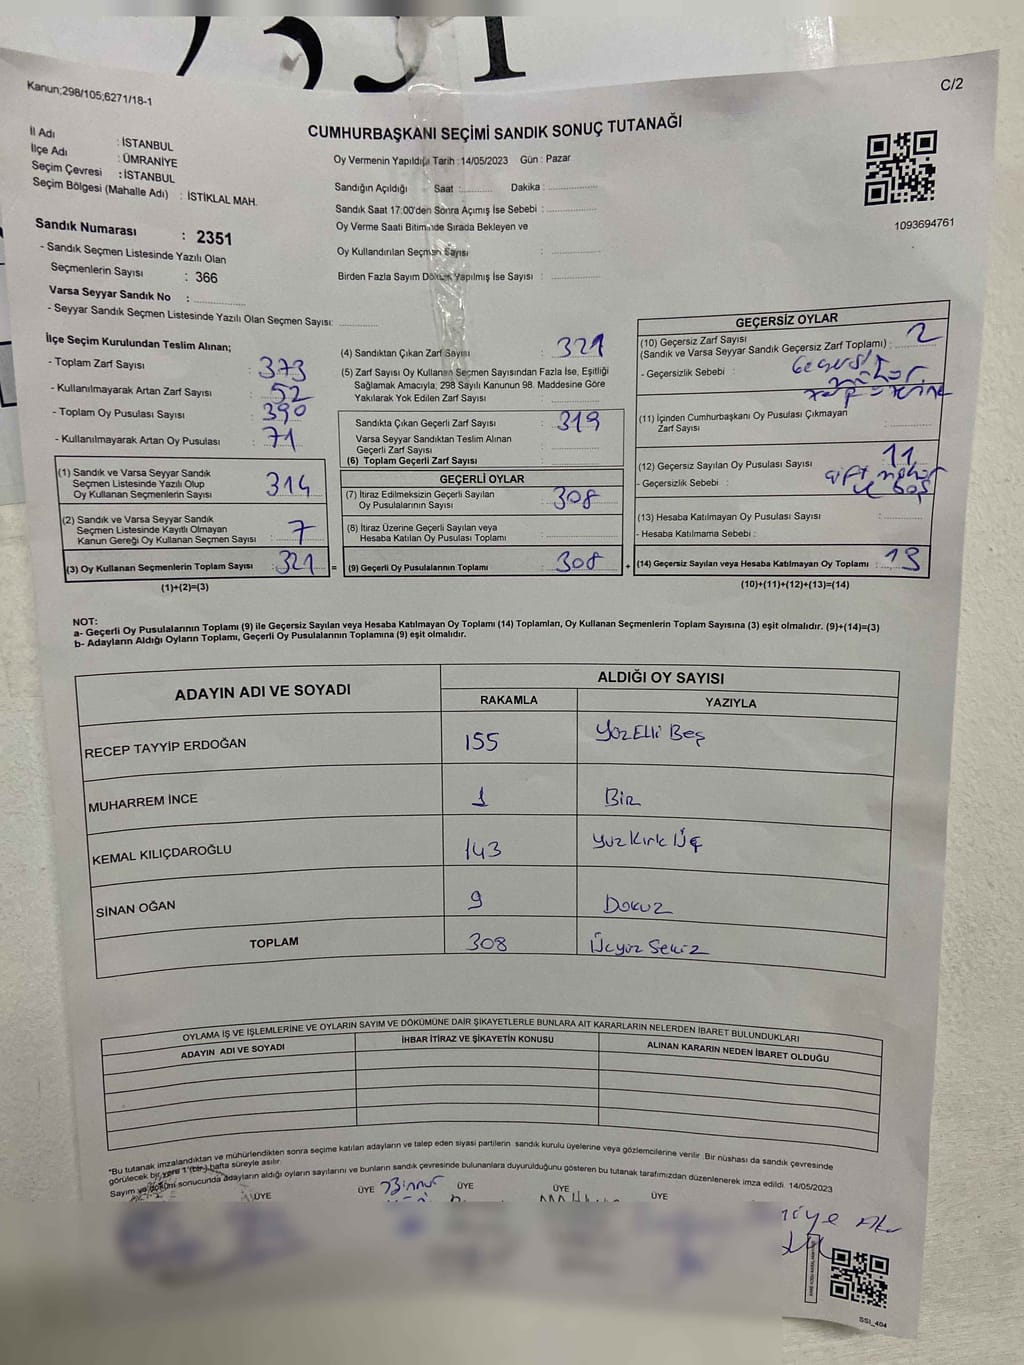 2351
Kanun;298/105;6271/18-1
C/2
CUMHURBAŞKANI SEÇİMİ SANDIK SONUÇ TUTANAĞI
İl Adı : İSTANBUL
İlçe Adı : ÜMRANİYE
Seçim Çevresi : İSTANBUL
Seçim Bölgesi (Mahalle Adı) : İSTİKLAL MAH.
Sandık Numarası : 2351
- Sandık Seçmen Listesinde Yazılı Olan
Seçmenlerin Sayısı : 366
Varsa Seyyar Sandık No :
- Seyyar Sandık Seçmen Listesinde Yazılı Olan Seçmen Sayısı:
Oy Vermenin Yapıldığı Tarih : 14/05/2023 Gün : Pazar
Sandığın Açıldığı Saat : Dakika :
Sandık Saat 17:00'den Sonra Açımış İse Sebebi :
Oy Verme Saati Bitiminde Sırada Bekleyen ve
Oy Kullandırılan Seçmen Sayısı :
Birden Fazla Sayım Döküm Yapılmış İse Sayısı :
1093694761
İlçe Seçim Kurulundan Teslim Alınan;
- Toplam Zarf Sayısı : 373
- Kullanılmayarak Artan Zarf Sayısı : 52
- Toplam Oy Pusulası Sayısı : 390
- Kullanılmayarak Artan Oy Pusulası : 71
(1) Sandık ve Varsa Seyyar Sandık
Seçmen Listesinde Yazılı Olup
Oy Kullanan Seçmenlerin Sayısı : 314
(2) Sandık ve Varsa Seyyar Sandık
Seçmen Listesinde Kayıtlı Olmayan
Kanun Gereği Oy Kullanan Seçmen Sayısı : 7
(3) Oy Kullanan Seçmenlerin Toplam Sayısı : 321 =
(1)+(2)=(3)
(4) Sandıktan Çıkan Zarf Sayısı : 321
(5) Zarf Sayısı Oy Kullanan Seçmen Sayısından Fazla İse, Eşitliği
Sağlamak Amacıyla, 298 Sayılı Kanunun 98. Maddesine Göre
Yakılarak Yok Edilen Zarf Sayısı :
Sandıkta Çıkan Geçerli Zarf Sayısı : 319
Varsa Seyyar Sandıktan Teslim Alınan
Geçerli Zarf Sayısı :
(6) Toplam Geçerli Zarf Sayısı :
GEÇERLİ OYLAR
(7) İtiraz Edilmeksizin Geçerli Sayılan
Oy Pusulalarının Sayısı : 308
(8) İtiraz Üzerine Geçerli Sayılan veya
Hesaba Katılan Oy Pusulası Toplamı :
(9) Geçerli Oy Pusulalarının Toplamı : 308 +
GEÇERSİZ OYLAR
(10) Geçersiz Zarf Sayısı
(Sandık ve Varsa Seyyar Sandık Geçersiz Zarf Toplamı) : 2
- Geçersizlik Sebebi : Geçersiz
mühür
zarf üzerine
(11) İçinden Cumhurbaşkanı Oy Pusulası Çıkmayan
Zarf Sayısı :
(12) Geçersiz Sayılan Oy Pusulası Sayısı : 11
- Geçersizlik Sebebi : çift mühür
ve boş
(13) Hesaba Katılmayan Oy Pusulası Sayısı :
- Hesaba Katılmama Sebebi :
(14) Geçersiz Sayılan veya Hesaba Katılmayan Oy Toplamı : 13
(10)+(11)+(12)+(13)=(14)
NOT:
a- Geçerli Oy Pusulalarının Toplamı (9) ile Geçersiz Sayılan veya Hesaba Katılmayan Oy Toplamı (14) Toplamları, Oy Kullanan Seçmenlerin Toplam Sayısına (3) eşit olmalıdır. (9)+(14)=(3)
b- Adayların Aldığı Oyların Toplamı, Geçerli Oy Pusulalarının Toplamına (9) eşit olmalıdır.
ADAYIN ADI VE SOYADI
ALDIĞI OY SAYISI
RAKAMLA YAZIYLA
RECEP TAYYİP ERDOĞAN 155 YüzElli Beş
MUHARREM İNCE 1 Bir
KEMAL KILIÇDAROĞLU 143 Yüz Kırk Üç
SİNAN OĞAN 9 Dokuz
TOPLAM 308 Üçyüz Sekiz
OYLAMA İŞ VE İŞLEMLERİNE VE OYLARIN SAYIM VE DÖKÜMÜNE DAİR ŞİKAYETLERLE BUNLARA AİT KARARLARIN NELERDEN İBARET BULUNDUKLARI
ADAYIN ADI VE SOYADI İHBAR İTİRAZ VE ŞİKAYETİN KONUSU ALINAN KARARIN NEDEN İBARET OLDUĞU
*Bu tutanak imzalandıktan ve mühürlendikten sonra seçime katılan adayların ve talep eden siyasi partilerin sandık kurulu üyelerine veya gözlemcilerine verilir. Bir nüshası da sandık çevresinde
görülecek bir yere 1 (bir) hafta süreyle asılır.
Sayım ve döküm sonucunda adayların aldığı oyların sayılarını ve bunların sandık çevresinde bulunanlara duyurulduğunu gösteren bu tutanak tarafımızdan düzenlenerek imza edildi. 14/05/2023
ÜYE ÜYE ÜYE ÜYE ÜYE
SSI_404